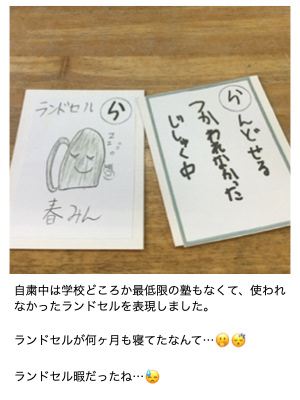 ランドセル
ら
zzz
春みん
らんどせる
つかわれなかった
じしゅく中
自粛中は学校どころか最低限の塾もなくて、使われ
なかったランドセルを表現しました。
ランドセルが何ヶ月も寝てたなんて…🤫😴
ランドセル暇だったね…😓